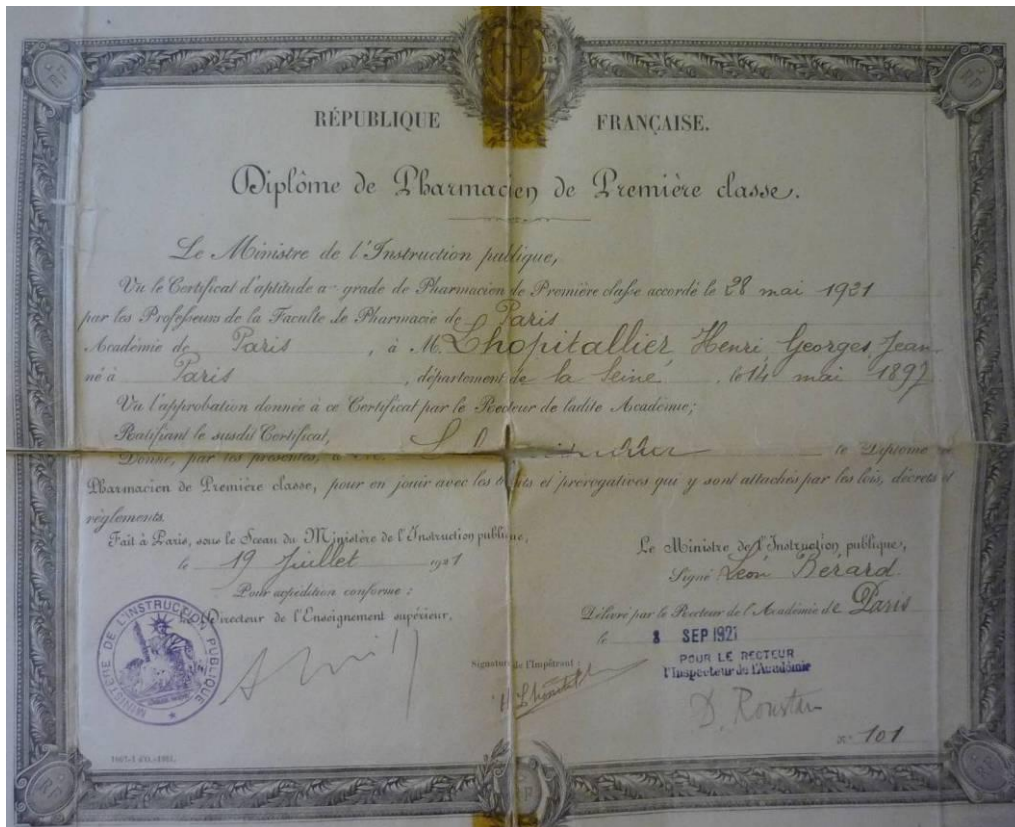 RÉPUBLIQUE FRANÇAISE.
Diplôme de Pharmacien de Première classe.
Le Ministre de l'Instruction publique,
Vu le Certificat d'aptitude a grade de Pharmacien de Première classe accordé le 28 mai 1921
par les Professeurs de la Faculté de Pharmacie de Paris
Académie de Paris, à M. Lhopitallier, Henri, Georges, Jean
né à Paris, département de la Seine, le 14 mai 1897
Vu l'approbation donnée à ce Certificat par le Recteur de ladite Académie;
Ratifiant le susdit Certificat,
Donne, par les présentes, à M. le Diplôme de
Pharmacien de Première classe, pour en jouir avec les droits et prérogatives qui y sont attachés par les lois, décrets et
règlements.
Fait à Paris, sous le Sceau du Ministère de l'Instruction publique,
le 19 Juillet 1921
Pour expédition conforme :
Le Directeur de l'Enseignement supérieur,
MINISTÈRE DE L'INSTRUCTION PUBLIQUE
Le Ministre de l'Instruction publique,
Signé Léon Bérard
Délivré par le Recteur de l'Académie de Paris
le 8 SEP 1921
POUR LE RECTEUR
l'Inspecteur de l'Académie
Signature de l'Impétrant :
D. Roustan
N° 101